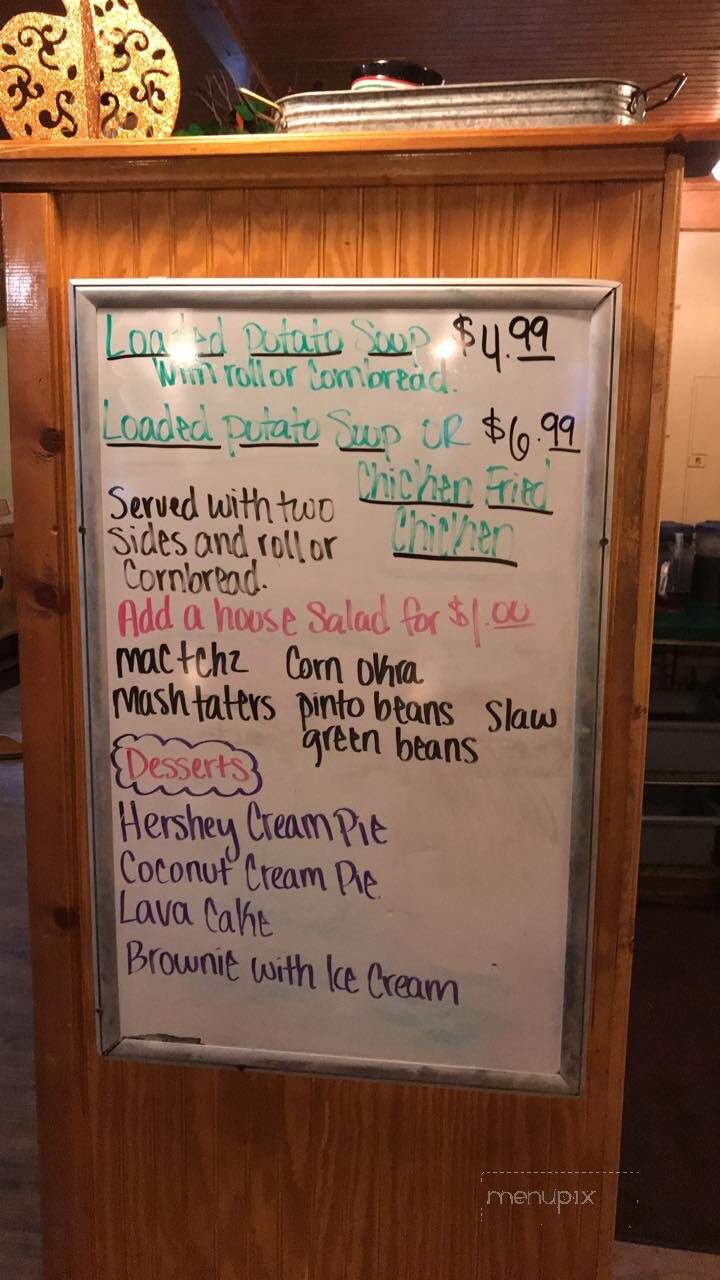 Loaded Potato Soup $4.99
With roll or Cornbread.
Loaded potato Soup OR $6.99
Chicken Fried
Chicken
Served with two
Sides and roll or
Cornbread.
Add a house Salad for $1.00
mac+chz Corn okra
mash taters pinto beans Slaw
green beans
Desserts
Hershey Cream Pie
Coconut Cream Pie
Lava Cake
Brownie with Ice Cream
menupix